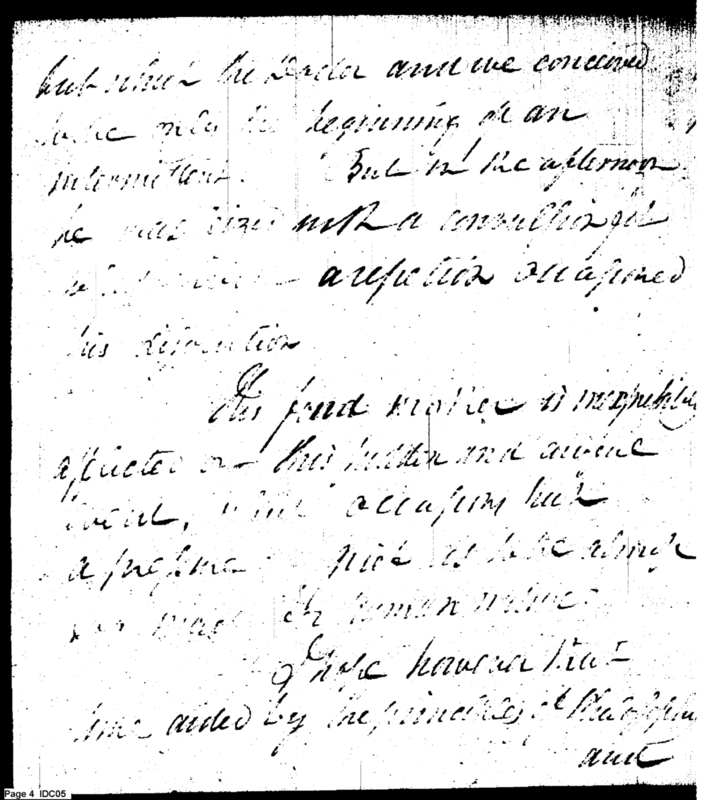 but which the Doctor and we conceived
to be only the beginning of an
intermittent. But in the afternoon
he was seized with a convulsion fit
a repetition occasioned
his dissolution
His fond mother is inexpressibly
afflicted on this sudden and
event, occasions such
a pressure as to be almost
human nature.
I hope however that
time aided by the principles of Philosophy
and
Page 4 IDC05